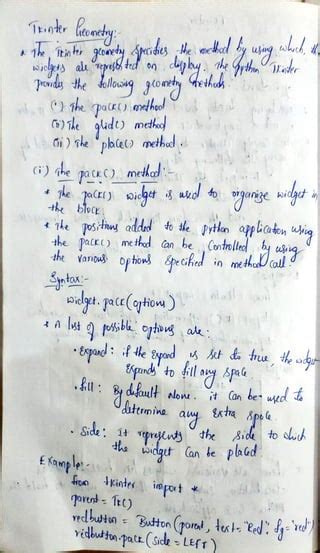 Tkinter Geometry:-
* The Tkinter geometry specifies the method by using which, the
widgets are represented on display. The python Tkinter
provides the following geometry methods.
(i) The pack() method
(ii) The grid() method
(iii) The place() method.
(i) The pack() method:-
* The pack() widget is used to organize widget in
the block.
* The positions added to the python application using
the pack() method can be controlled by using
the various options specified in method call
Syntax:-
widget.pack(options)
* A list of possible options are:
• Expand: if the expand is set to true, the widget
expands to fill any space
• fill: By default None. it can be used to
determine any extra space.
• Side: It represents the side to which
the widget can be placed.
Example:-
from tkinter import *
parent = TK()
redbutton = Button(parent, text="Red", fg="red")
redbutton.pack(side=LEFT)